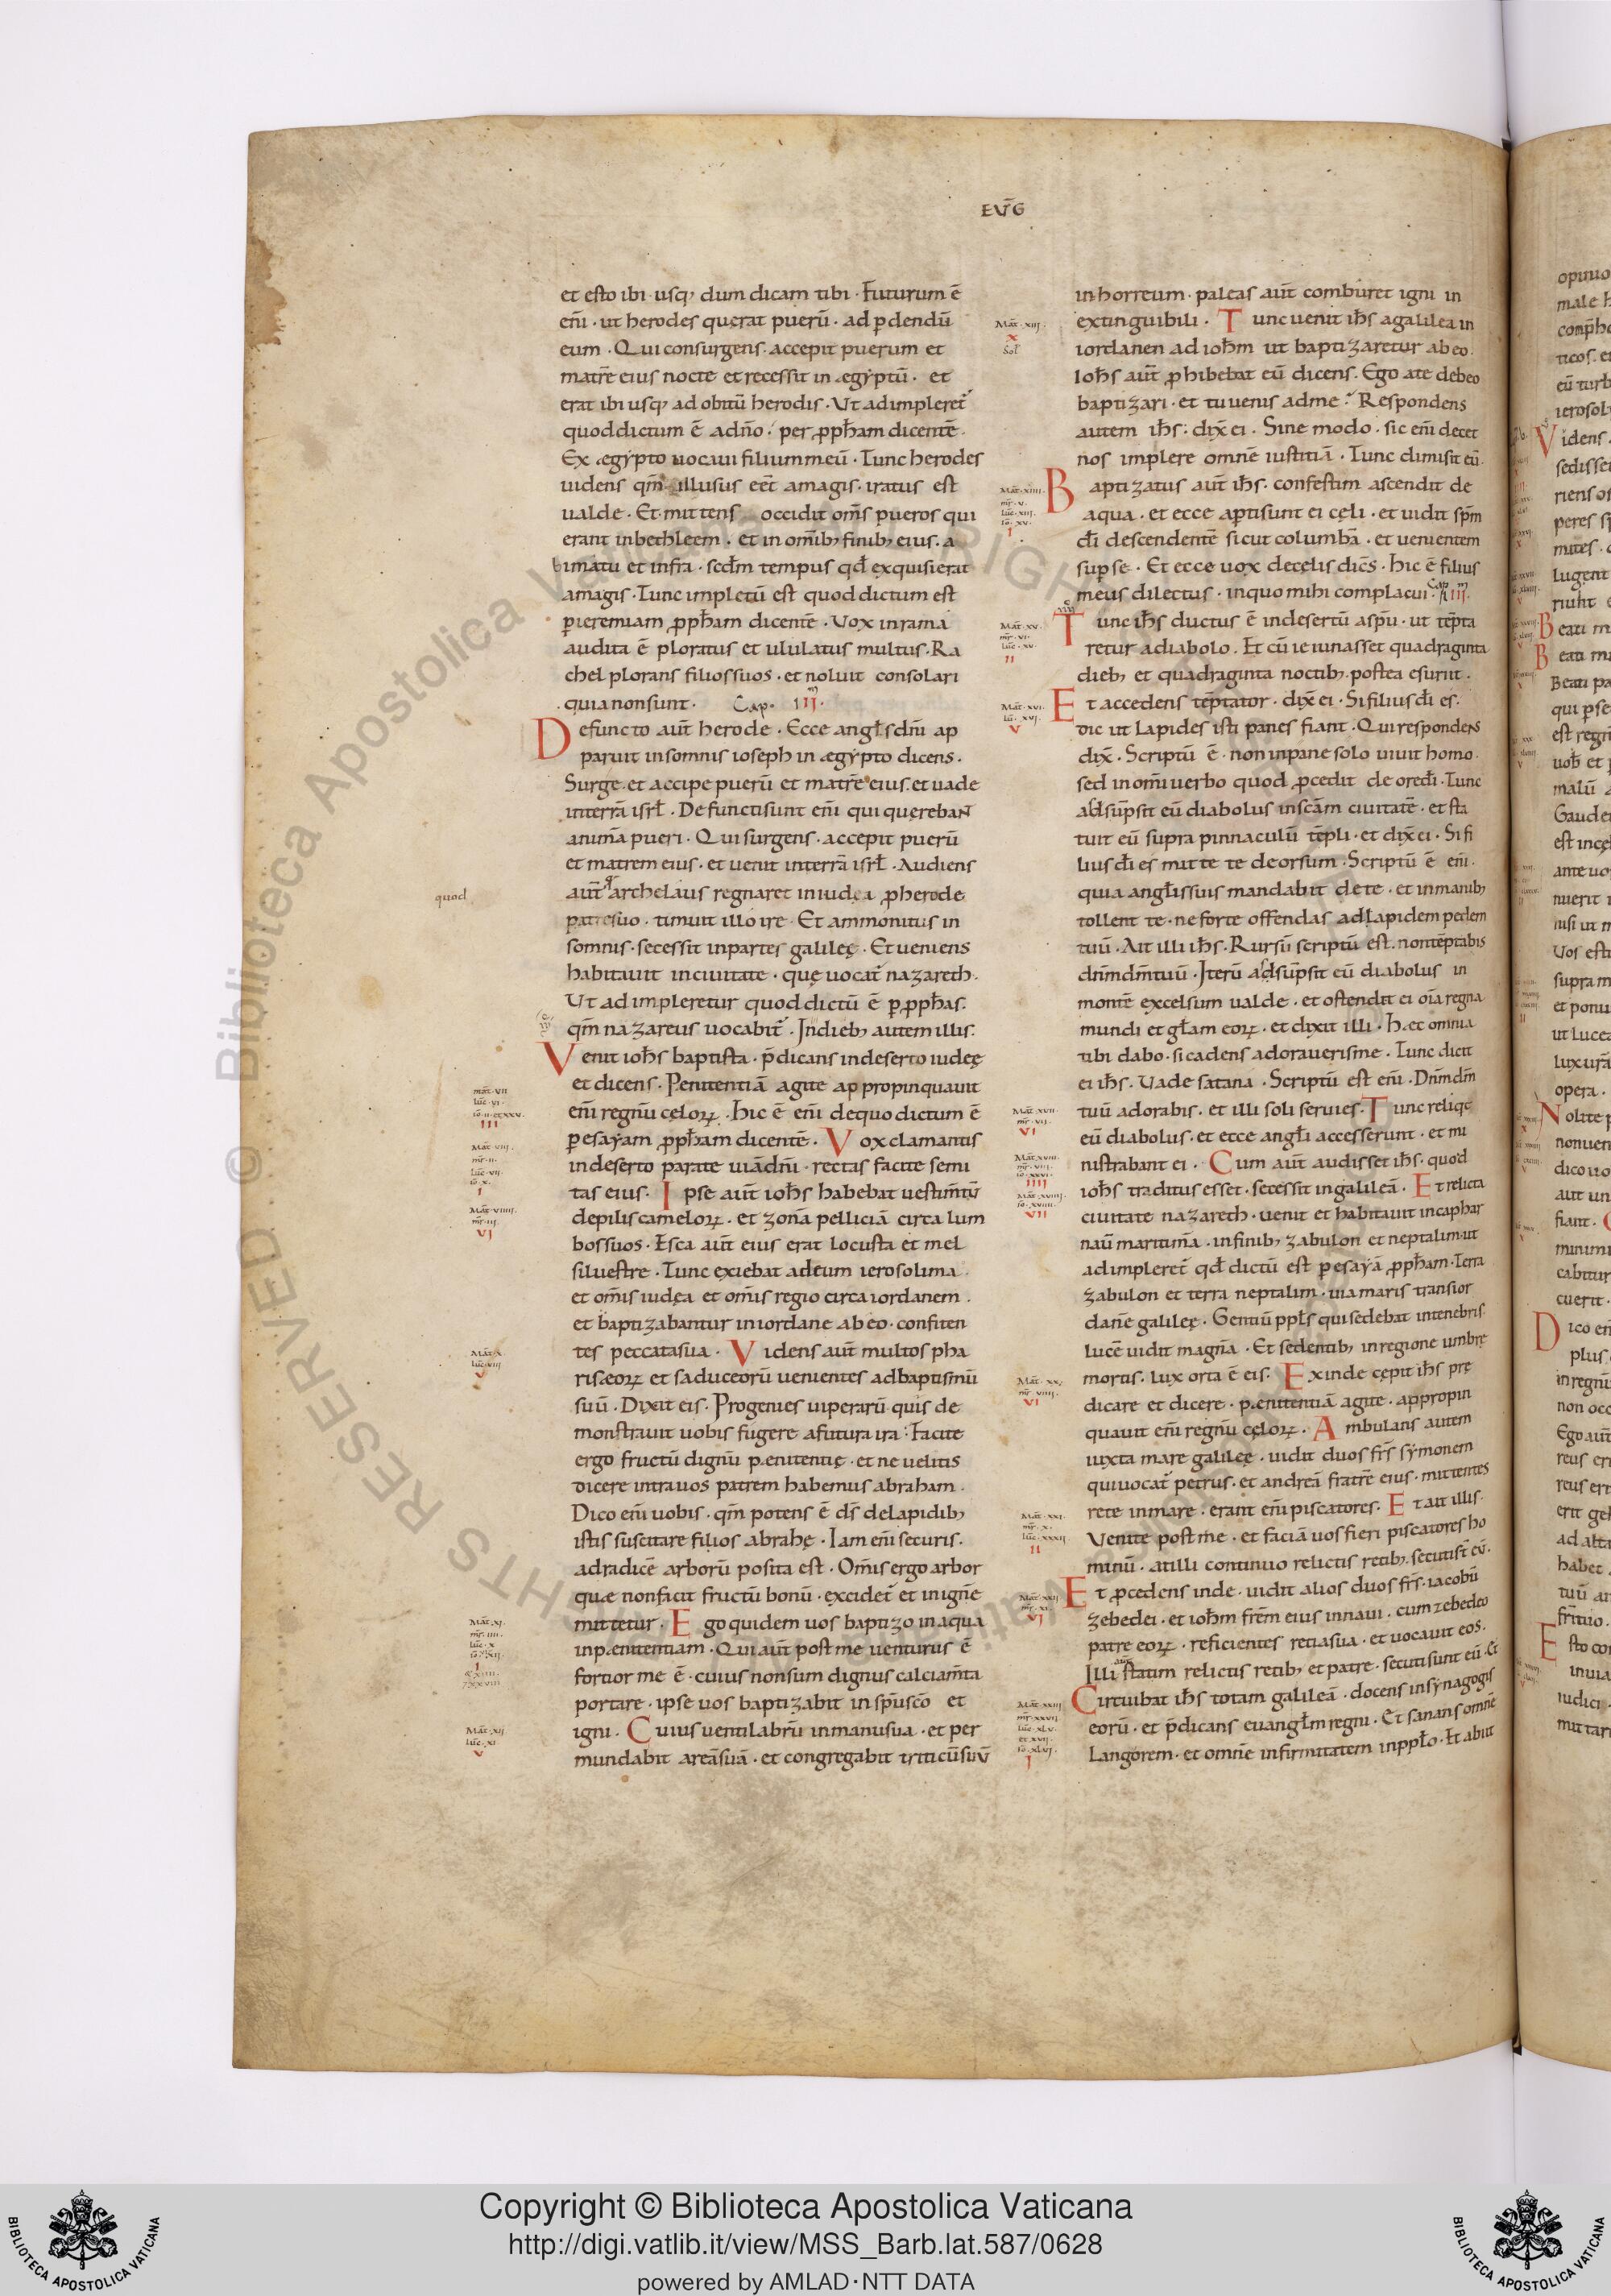 EV̄G
et esto ibi · usq; dum dicam tibi · Futurum ē
eni̅ · ut herodes querat pueru̅ · ad p̱dendu̅
eum · Qui consurgens · accepit puerum et
matre̅ eius nocte et recessit in ægẏptu̅ · et
erat ibi usq; ad obitu̅ herodis · Ut adimpleret᷑
quod dictum ē adn̅o · per ꝓph̅am dicente̅ ·
Ex ægẏpto uocaui filium meu̅ · Tunc herodes
uidens qm̅ illusus eet̅ amagis · iratus est
ualde · Et mittens occidit om̅s pueros qui
erant inbethleem · et in om̅ib; finib; eius · a
bimatu et infra · sedm̅ tempus qd̅ exquisierat
amagis · Tunc impletu̅ est quod dictum est
p̱ ieremiam ꝓph̅am dicente̅ · Uox inrama
audita ē ploratus et ululatus multus · Ra
chel plorans filios suos · et noluit consolari
quia non sunt · Cap · III
Defuncto aut̅ herode · Ecce angl̅s dn̅i ap
paruit insomnis ioseph in ægẏpto dicens ·
Surge · et accipe pueru̅ et matre̅ eius · et uade
interra̅ isrl̅ · Defuncti sunt eni̅ qui quereban̅t
anima̅ pueri · Qui surgens · accepit pueru̅
et matrem eius · et uenit interra̅ isrl̅ · Audiens
quod
aut̅ archelaus regnaret in iudęa ꝓ herode
patre suo · timuit illo ire · Et ammonitus in
somnis · secessit inpartes galileę · Et ueniens
habitauit inciuitate · quę uocat᷑ nazareth ·
Ut adimpleretur quod dictu̅ ē p̱ ꝓph̅as ·
qm̅ nazareus uocabit᷑ · Indieb; autem illis ·
Venit ioh̅s baptista · p̅dicans indeserto iudeę
et dicens · Penitentia̅ agite appropinquauit
eni̅ regnu̅ cęloꝝ · Hic ē eni̅ dequo dictum ē
p̱ esaẏam ꝓph̅am dicente̅ · Vox clamantis
indeserto parate uia̅ dn̅i · rectas facite semi
tas eius · Ipse aut̅ ioh̅s habebat uestim̅tu̅
depilis cameloꝝ · et zona̅ pellicia̅ circa lum
bos suos · Esca aut̅ eius erat locusta et mel
siluestre · Tunc exiebat adeum ierosolima ·
et om̅is iudęa et om̅is regio circa iordanem ·
et baptizabantur in iordane abeo · confiten
tes peccata sua · Videns aut̅ multos pha
riseoꝝ et saduceoru̅ uenientes adbaptismu̅
suu̅ · Dixit eis · Progenies uiperaru̅ quis de
monstrauit uobis fugere afutura ira · Facite
ergo fructu̅ dignu̅ pęnitentię · et ne uelitis
dicere intra uos patrem habemus abraham ·
Dico eni̅ uobis · qm̅ potens ē ds̅ delapidib;
istis suscitare filios abrahę · Iam eni̅ securis ·
adradice̅ arboru̅ posita est · Om̅is ergo arbor
quæ nonfacit fructu̅ bonu̅ · excidet᷑ et inigne̅
mittetur · Ego quidem uos baptizo inaqua
inpęnitentiam · Qui aut̅ post me uenturus ē
fortior me ē · cuius nonsum dignus calciam̅ta
portare · ipse uos baptizabit in sp̅u sc̅o et
igni · Cuius uentilabru̅ inmanu sua · et per
mundabit area̅ sua̅ · et congregabit triticu̅ suu̅
inhorreum · paleas aut̅ comburet igni in
extinguibili · Tunc uenit ih̅s agalilea in
iordanen ad ioh̅m ut baptizaretur abeo ·
Ioh̅s aut̅ ꝓhibebat eu̅ dicens · Ego ate debeo
baptizari · et tu uenis adme · Respondens
autem ih̅s · dix̅ ei · Sine modo · sic eni̅ decet
nos implere omne̅ iustitia̅ · Tunc dimisit eu̅ ·
Baptizatus aut̅ ih̅s · confestim ascendit de
aqua · et ecce aperti sunt ei cęli · et uidit sp̅m
di̅ descendente̅ sicut columba̅ · et uenientem
sup̱ se · Et ecce uox decelis dic̅s · Hic ē filius
meus dilectus · inquo mihi complacui · Cap IIII
Tunc ih̅s ductus ē indesertu̅ asp̅u · ut te̅pta
retur adiabolo · Et cu̅ ieiunasset quadraginta
dieb; et quadraginta noctib; · postea esuriit ·
Et accedens te̅ptator · dix̅ ei · Si filius di̅ es ·
dic ut lapides isti panes fiant · Qui respondens
dix̅ · Scriptu̅ ē · non inpane solo uiuit homo ·
sed in om̅i uerbo quod ꝓcedit de ore di̅ · Tunc
adsu̅psit eu̅ diabolus insc̅am ciuitate̅ · et sta
tuit eu̅ supra pinnaculu̅ te̅pli · et dix̅ ei · Si fi
lius di̅ es mitte te deorsum · Scriptu̅ ē eni̅ ·
quia angl̅is suis mandabit de te · et inmanib;
tollent te · ne forte offendas adlapidem pedem
tuu̅ · Ait illi ih̅s · Rursu̅ scriptu̅ est · non te̅ptabis
dn̅m dm̅ tuu̅ · Iteru̅ adsu̅psit eu̅ diabolus in
monte̅ excelsum ualde · et ostendit ei oi̅a regna
mundi et gl̅am eoꝝ · et dixit illi · Hęc omnia
tibi dabo · si cadens adoraueris me · Tunc dicit
ei ih̅s · Uade satana · Scriptu̅ est eni̅ · Dn̅m dm̅
tuu̅ adorabis · et illi soli seruies · Tunc reliqt
eu̅ diabolus · et ecce angl̅i accesserunt · et mi
nistrabant ei · Cum aut̅ audisset ih̅s · quod
ioh̅s traditus esset · secessit ingalilea̅ · Et relicta
ciuitate nazareth · uenit et habitauit incaphar
nau̅ maritima̅ · infinib; zabulon et neptalim · ut
adimpleret᷑ qd̅ dictu̅ est p̱ esaẏa̅ ꝓph̅am · Terra
zabulon et terra neptalim · uia maris transior
dane̅ galileę · Gentiu̅ ppl̅s qui sedebat intenebris
luce̅ uidit magna̅ · Et sedentib; inregione umbrę
mortis · lux orta ē eis · Exinde cępit ih̅s prę
dicare et dicere · pęnitentia̅ agite · appropin
quauit eni̅ regnu̅ cęloꝝ · Ambulans autem
iuxta mare galileę · uidit duos fr̅s sẏmonem
qui uocat᷑ petrus · et andrea̅ fratre̅ eius · mittentes
rete inmare · erant eni̅ piscatores · Et ait illis ·
Venite post me · et facia̅ uos fieri piscatores ho
minu̅ · at illi continuo relictis retib; · secuti st̅ eu̅ ·
Et ꝓcedens inde · uidit alios duos fr̅s · iacobu̅
zebedei · et ioh̅m fre̅m eius innaui · cum zebedeo
patre eoꝝ · reficientes retia sua · et uocauit eos ·
Illi aut̅ statim relictis retib; et patre · secuti sunt eu̅ · Et
Circuibat ih̅s totam galilea̅ · docens insẏnagogis
eoru̅ · et p̅dicans euangl̅m regni · Et sanans omne̅
langorem · et omne̅ infirmitatem inppl̅o · Et abiit
Copyright © Biblioteca Apostolica Vaticana
http://digi.vatlib.it/view/MSS_Barb.lat.587/0628
powered by AMLAD·NTT DATA